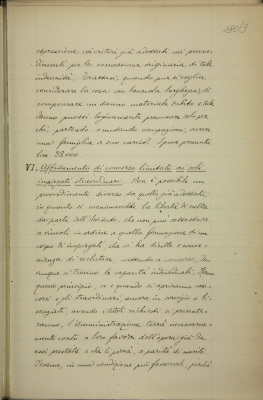 280/3
espressione coi criteri già adottati nei provve-
dimenti per la concessione originaria di tale
indennità. Trattasi, quando pur si voglia
considerare la cosa con benevola larghezza, di
compensare un danno materiale subito e tale
danno puossi logicamente presumere solo per
chi, partendo e mutando occupazioni, aveva
una famiglia a suo carico. Spesa presunta
lire 28.000.
VI. Affidamento di concorso limitato ai soli
impiegati straordinari. Non è possibile un
provvedimento diverso da quello già adottato,
in quanto si menomerebbe la libertà di scelta
da parte dell'Istituto, che non può assoggettarsi
a vincoli in ordine a quella formazione di un
corpo di impiegati che si ha diritto e conve-
nienza di reclutare, mettendo a concorso, do-
vunque si trovino le capacità individuali. Fermo
questo principio, se e quando si apriranno con-
corsi e gli straordinari ancora in servizio o li-
cenziati avendo i titoli richiesti si presente-
ranno, l'Amministrazione terrà necessaria-
mente conto a loro favore dell'opera già da
essi prestata e che li porrà, a parità di merito,
in una condizione più favorevole, perché